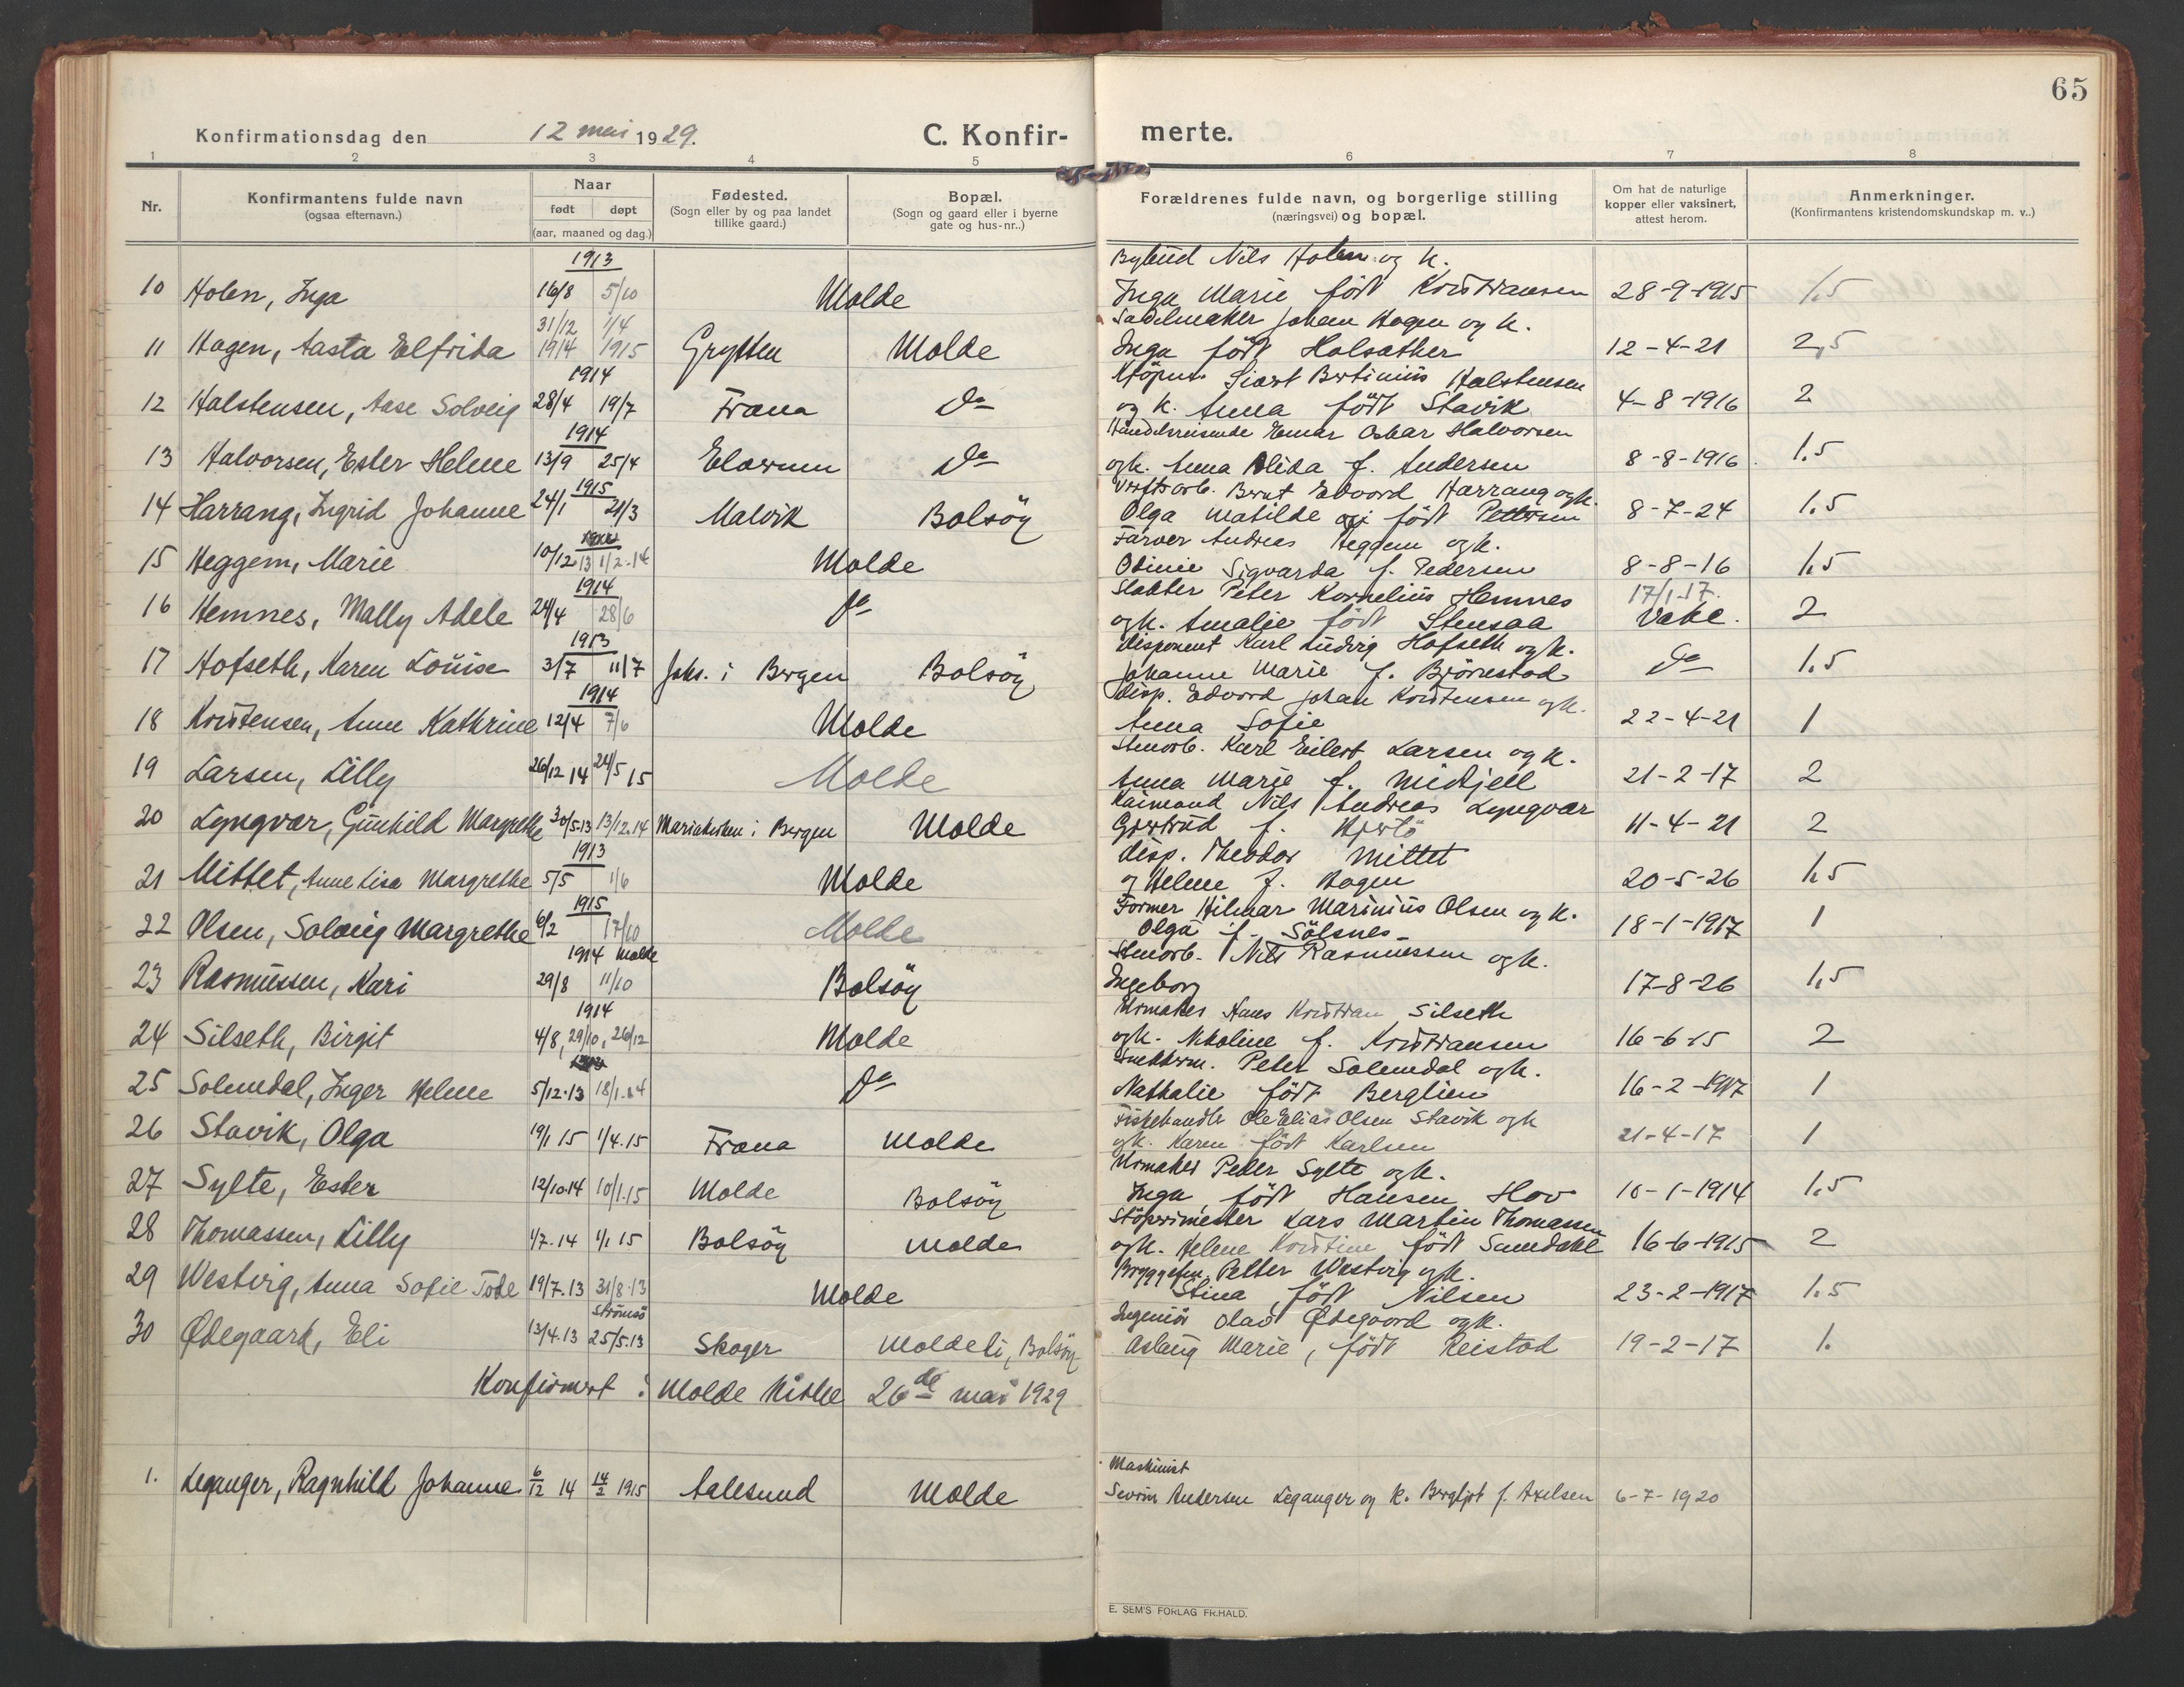 65
Konfirmationsdag den 12 mai 1929.
C. Konfirmerte.
1 2 3 4 5 6 7 8
Nr.
Konfirmantens fulde navn
(ogsaa efternavn.)
Naar
født døpt
(aar, maaned og dag.)
Fødested.
(Sogn eller by og paa landet
tillike gaard.)
Bopæl.
(Sogn og gaard eller i byerne
gate og hus-nr..)
Forældrenes fulde navn, og borgerlige stilling
(næringsvei) og bopæl.
Om hat de naturlige
kopper eller vaksinert,
attest herom.
Anmerkninger.
(Konfirmantens kristendomskundskap m. v..)
1913
Bybud Nils Holen og k.
10 Holen, Inga 16/8 5/10 Molde Inga Marie født Kristiansen 28-9-1915 1.5
31/12 1/4
Sadelmaker Johan Hagen og k.
11 Hagen, Aasta Elfrida 19/4 1915 Grytten Molde Inga født Holsæther 12-4-21 2,5
1914
Sivert Bertinius Halstensen
12 Halstensen, Aase Solveig 28/4 19/7 Fræna Do og k. Anna født Stavik 4-8-1916 2
1914
Handelsreisende Einar Oskar Halvorsen
13 Halvorsen, Ester Helene 13/9 25/4 Elverum Do og k. Anna Alida f. Andersen 8-8-1916 1.5
1915
Verftsarb. Bernt Edvard Harrang og k.
14 Harrang, Ingrid Johanne 24/1 21/3 Malvik Bolsöy Olga Matilde født Pettersen 8-7-24 1.5
Farver Andreas Heggem og k.
15 Heggem, Marie 10/12 13 1/2-14 Molde Odinie Sigvarda f. Pedersen 8-8-16 1.5
1914
Slakter Peter Kornelius Hemnes 17/1.17.
16 Hemnes, Mally Adele 24/4 28/6 Do og k. Amalie født Stensaa Vakc. 2
1913
Disponent Karl Ludvig Hofseth og k.
17 Hofseth, Karen Louise 3/7 11/7 Joks. i Bergen Bolsöy Johanne Marie f. Bjørnestad Do 1.5
1914
Disp. Edvard Johan Kristensen og k.
18 Kristensen, Anne Kathrine 12/4 7/6 Molde Anna Sofie 22-4-21 1
Stenarb. Karl Eilert Larsen og k.
19 Larsen, Lilly 26/12 14 24/5 15 Molde Anna Marie f. Midtjell 21-2-17 2
Nils Andreas Lyngvær
20 Lyngvær, Gunhild Margrethe 30/5.13 13/12.14 Mariakirken i Bergen Molde Gjertrud f. Hjertö 11-4-21 2
1913
Disp. Theodor Mittet
21 Mittet, Anne Lisa Margrethe 5/5 1/6 Molde og Helene f. Bogen 20-5-26 1.5
1915
Former Hilmar Marinius Olsen og k.
22 Olsen, Solveig Margrethe 6/2 17/10 Molde Olga f. Sölsnes 18-1-1917 1
1914 Molde
Stenarb. Nils Rasmussen og k.
23 Rasmussen, Kari 29/8 11/10 Bolsöy Ingeborg 17-8-26 1,5
1914
Urmaker Hans Kristian Silseth
24 Silseth, Birgit 4/8, 29/10, 26/12 Molde og k. Nikoline f. Kristiansen 16-6-15 2
Snekkerm. Peter Solemdal og k.
25 Solemdal, Inger Helene 5/12.13 18/1.14 Do Nathalie født Berglien 16-2-1917 1
Fiskehandler Ole Elias Olsen Stavik og k
26 Stavik, Olga 19/1 15 1/4.15 Fræna Molde og k. Karen født Karlsen 21-4-17 1
Urmaker Peder Sylte og k.
27 Sylte, Ester 12/10.14 10/1.15 Molde Bolsöy Inga, født Hansen Hov 10-1-1914 1.5
Støperimester Lars Martin Thomassen
28 Thomassen, Lilly 1/7.14 1/1 15 Bolsöy Molde og k. Helene Kristine født Sundahl 16-6-1915 2
Petter Westvig og k.
29 Westvig, Anna Sofie Tode 19/7.13 31/8.13 Molde Stina født Nilsen 23-2-1917 1.5
Strömsö
Ingeniör Olav Ødegaard og k.
30 Ødegaard, Eli 13/4.13 25/5.13 Skoger Moldeli, Bolsöy Aslaug Marie, født Reistad 19-2-17 1.
Konfirmert i Molde kirke 26de mai 1929
Maskinist
1. Leganger, Ragnhild Johanne 6/12 14 14/2 1915 Aalesund Molde Severin Andersen Leganger og k. Bergljot f. Axelsen 6-7-1920
E. SEM'S FORLAG FR.HALD.